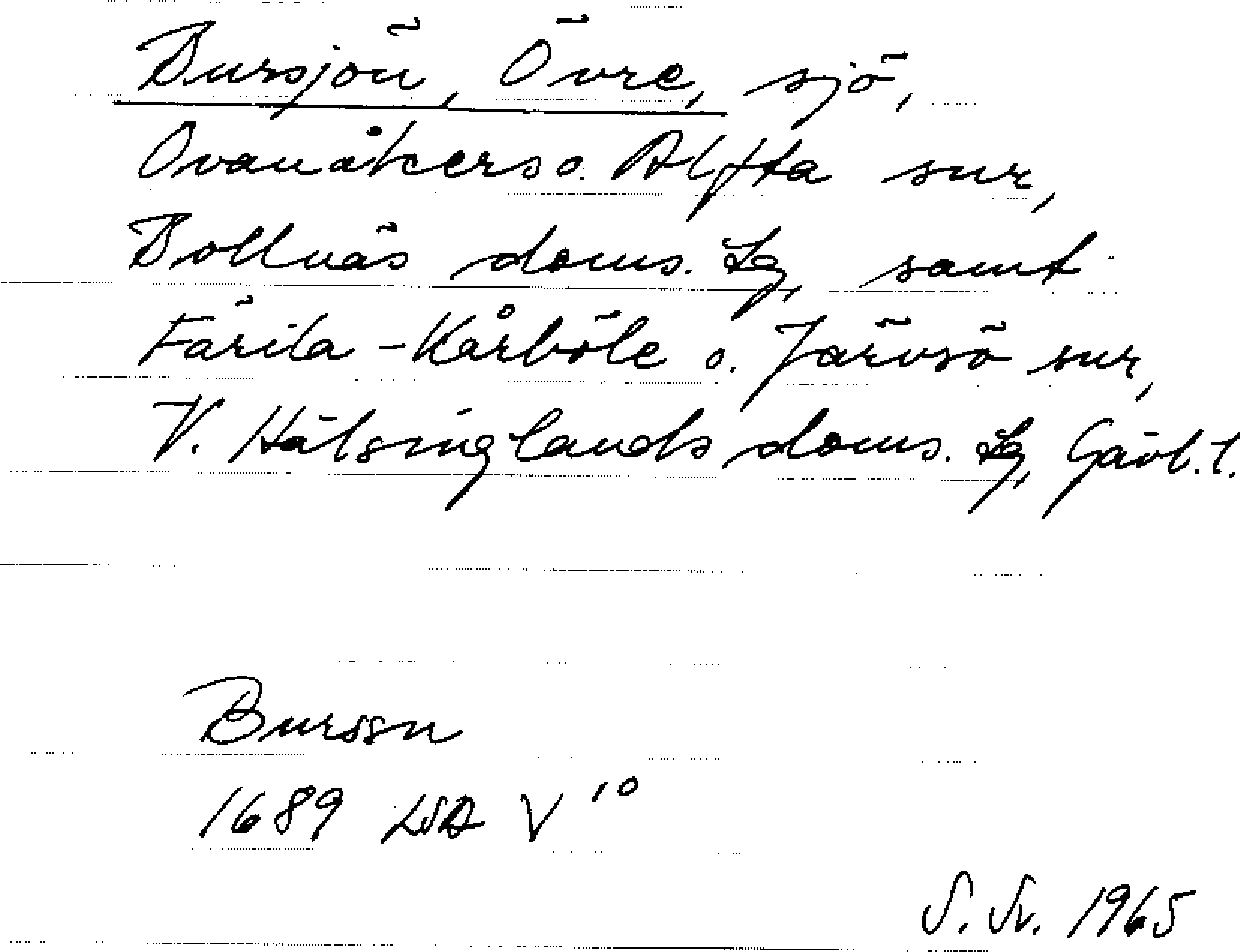 Bursjön, Övre, sjö,
Ovanåkers o. Alfta snr,
Bollnäs doms. lg, samt
Färila-Kårböle o. Järvsö snr,
V. Hälsinglands doms. lg, Gävl. l.
Burssn
1689 LSA V 10
1965